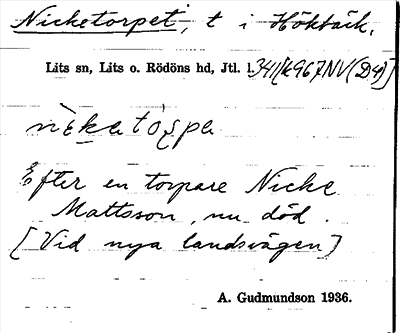 Nicketorpet, t i Höktäck.
Lits sn, Lits o. Rödöns hd, Jtl. l.
nèkatǫrpa
Efter en torpare Nicke
Mattsson, nu död.
[Vid nya landsvägen]
A. Gudmundson 1936.